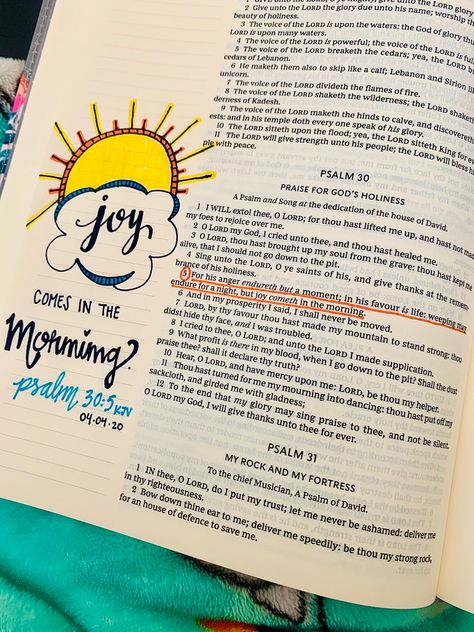 beauty of holiness.
3 The voice of the LORD is upon the waters: the God of glory thu
LORD is upon many waters.
4 The voice of the LORD is powerful; the voice of the LORD is full
5 The voice of the LORD breaketh the cedars; yea, the LORD b
cedars of Lebanon.
6 He maketh them also to skip like a calf; Lebanon and Sirion lik
unicorn.
7 The voice of the LORD divideth the flames of fire.
8 The voice of the LORD shaketh the wilderness; the LORD shaket
derness of Kadesh.
9 The voice of the LORD maketh the hinds to calve, and discovereth
ests: and in his temple doth every one speak of his glory.
10 The LORD sitteth upon the flood; yea, the LORD sitteth King for e
11 The LORD will give strength unto his people; the LORD will bless h
ple with peace.
PSALM 30
PRAISE FOR GOD'S HOLINESS
A Psalm and Song at the dedication of the house of David.
1 I WILL extol thee, O LORD; for thou hast lifted me up, and hast not mad
my foes to rejoice over me.
2 O LORD my God, I cried unto thee, and thou hast healed me.
3 O LORD, thou hast brought up my soul from the grave: thou hast kept me
alive, that I should not go down to the pit.
4 Sing unto the LORD, O ye saints of his, and give thanks at the remem
brance of his holiness.
5 For his anger endureth but a moment; in his favour is life: weeping may
endure for a night, but joy cometh in the morning.
6 And in my prosperity I said, I shall never be moved.
7 LORD, by thy favour thou hast made my mountain to stand strong: thou
didst hide thy face, and I was troubled.
8 I cried to thee, O LORD; and unto the LORD I made supplication.
9 What profit is there in my blood, when I go down to the pit? Shall the dust
praise thee? shall it declare thy truth?
10 Hear, O LORD, and have mercy upon me: LORD, be thou my helper.
11 Thou hast turned for me my mourning into dancing: thou hast put off my
sackcloth, and girded me with gladness;
12 To the end that my glory may sing praise to thee, and not be silent.
O LORD my God, I will give thanks unto thee for ever.
PSALM 31
MY ROCK AND MY FORTRESS
To the chief Musician, A Psalm of David.
1 IN thee, O LORD, do I put my trust; let me never be ashamed: deliver me
in thy righteousness.
2 Bow down thine ear to me; deliver me speedily: be thou my strong rock,
for an house of defence to save me.
joy
COMES IN THE
Morning.
psalm 30:5 KJV
04.04.20